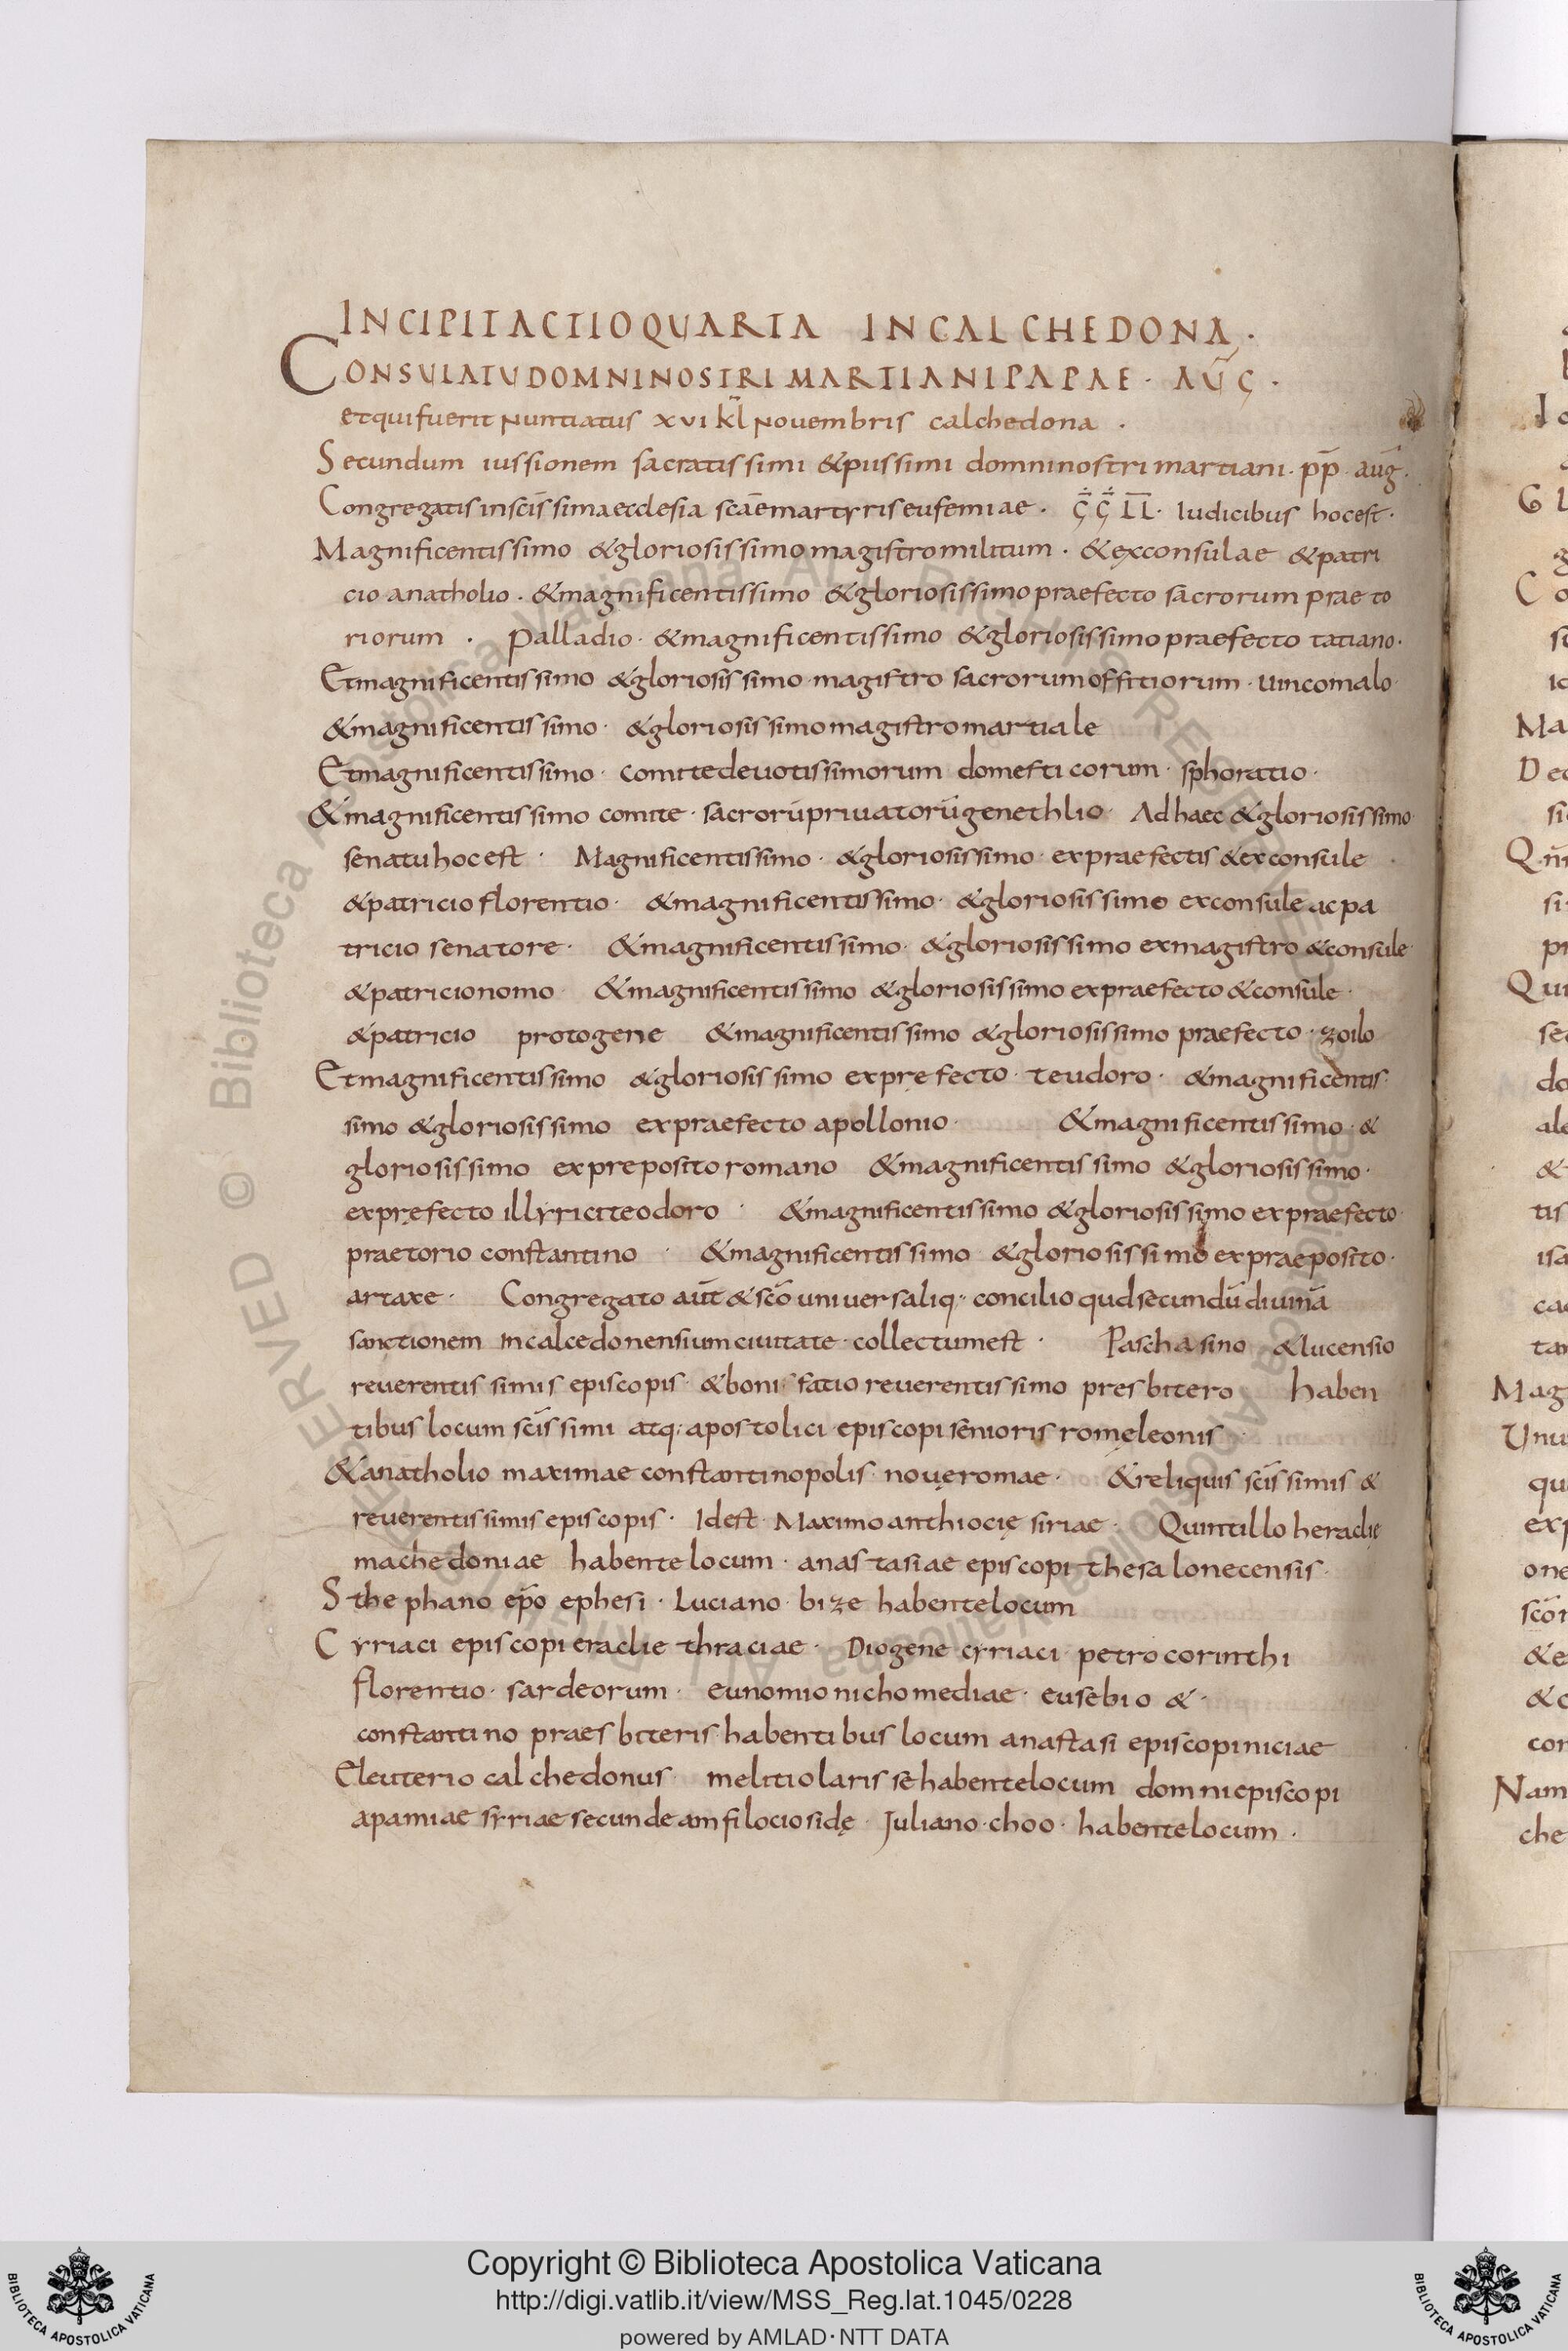 INCIPIT ACTIO QUARTA IN CALCHEDONA ·
CONSULATU DOMNI NOSTRI MARTIANI PAPAE · AUG̃ ·
et qui fuerit nuntiatus xvi kl̃ novembris calchedona ·
Secundum iussionem sacratissimi & piissimi domni nostri martiani · pp̄ · aug̃ ·
Congregatis in scīssima ecclesia scāe martyris eufemiae · iudicibus hocest ·
Magnificentissimo & gloriosissimo magistro militum · & exconsulae & patri
cio anatholio · & magnificentissimo & gloriosissimo praefecto sacrorum praeto
riorum · Palladio · & magnificentissimo & gloriosissimo praefecto tatiano ·
Et magnificentissimo & gloriosissimo magistro sacrorum offitiorum · uincomalo ·
& magnificentissimo · & gloriosissimo magistro martiale
Et magnificentissimo · comite deuotissimorum domesticorum · sphoratio ·
& magnificentissimo comite · sacrorū priuatorū genethlio · Ad haec & gloriosissimo
senatu hoc est · Magnificentissimo · & gloriosissimo · ex praefectis & exconsule
& patricio florentio · & magnificentissimo · & gloriosissimo exconsule ac pa
tricio senatore · & magnificentissimo · & gloriosissimo exmagistro & consule
& patricio nomo · & magnificentissimo & gloriosissimo expraefecto & consule ·
& patricio protogene & magnificentissimo & gloriosissimo praefecto · zoilo
Et magnificentissimo & gloriosissimo exprefecto · teudoro · & magnificentis
simo & gloriosissimo expraefecto apollonio · & magnificentissimo · &
gloriosissimo expreposito romano & magnificentissimo & gloriosissimo ·
expręfecto illyrici teodoro · & magnificentissimo & gloriosissimo expraefecto
praetorio constantino · & magnificentissimo & gloriosissimo expraeposito ·
artaxe · Congregato aūt & scō uniuersaliq· concilio qud secundū diuinā
sanctionem in calcedonensium ciuitate · collectum est · Paschasino & lucensio
reuerentissimis episcopis · & bonifatio reuerentissimo presbitero haben
tibus locum scīssimi atq: apostolici episcopi senioris romę leonis
& anatholio maximae constantinopolis · nouę romae · & reliquis scīssimis &
reuerentissimis episcopis · Idest · Maximo anthiocię siriae · Quintillo heraclię
machedoniae habente locum · anastasiae episcopi thesalonecensis ·
Sthephano ep̄o ephesi · Luciano · bize habente locum
Cyriaci episcopi eraclie thraciae · Diogene cyriaci · petro corinthi
florentio · sardeorum · eunomio nichomediae · eusebio & ·
constantino praesbiteris habentibus locum anastasi episcopi niciae
Eleuterio calchedonus melitio larisse habente locum domni episcopi
apamiae syriae secunde amfilocio sidę · Juliano · choo · habente locum ·
© Biblioteca Apostolica Vaticana
Copyright © Biblioteca Apostolica Vaticana
http://digi.vatlib.it/view/MSS_Reg.lat.1045/0228
powered by AMLAD · NTT DATA
BIBLIOTECA APOSTOLICA VATICANA
BIBLIOTECA APOSTOLICA VATICANA